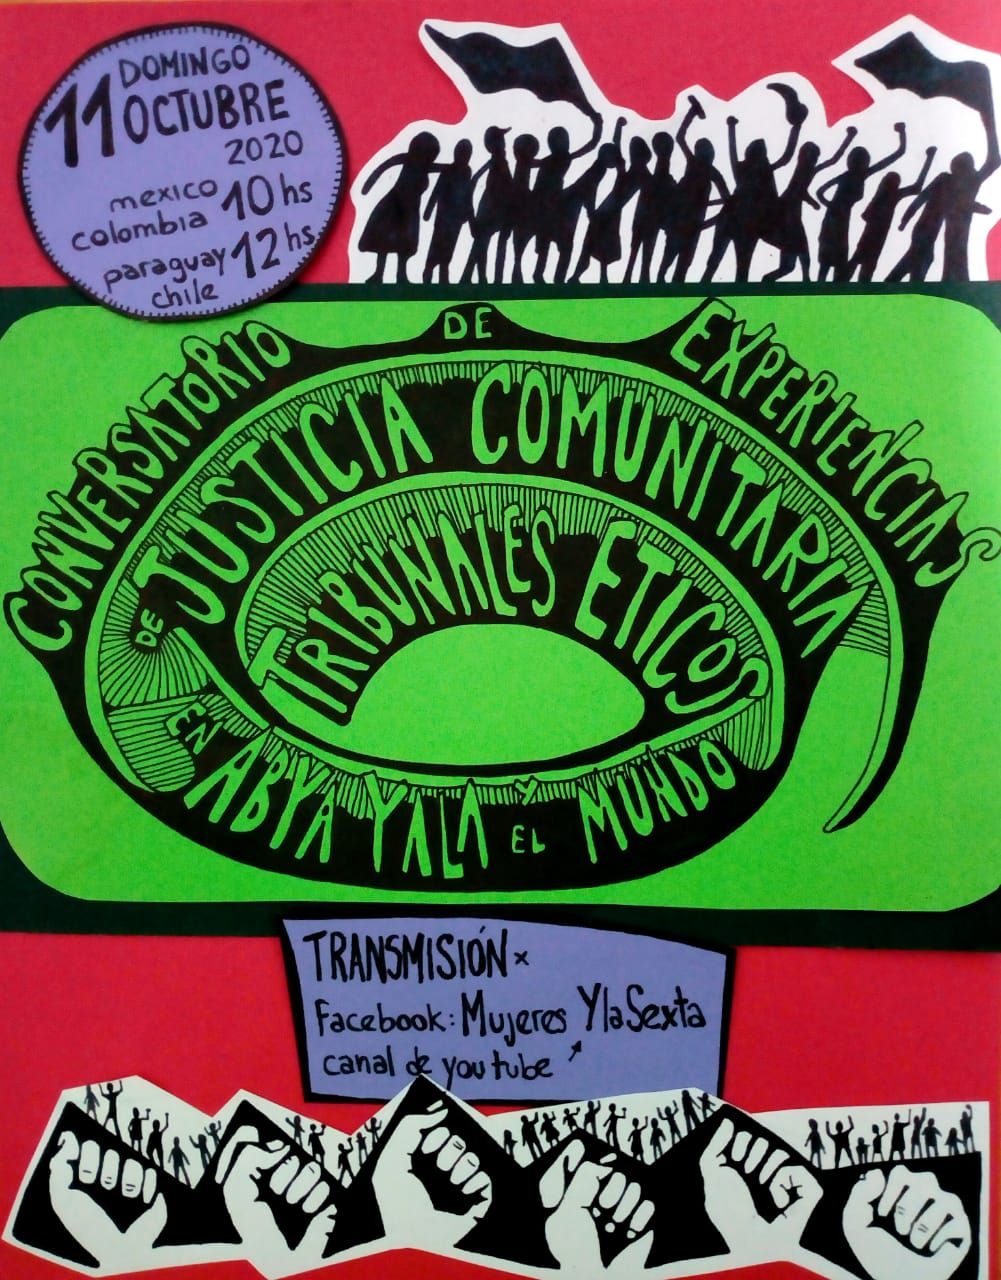 DOMINGO
11 OCTUBRE
2020
mexico
colombia 10 hs
paraguay 12 hs
chile
CONVERSATORIO DE EXPERIENCIAS
DE JUSTICIA COMUNITARIA
TRIBUNALES ETICOS
EN ABYA YALA Y EL MUNDO
TRANSMISIÓN x
Facebook: Mujeres YlaSexta
canal de youtube ↗